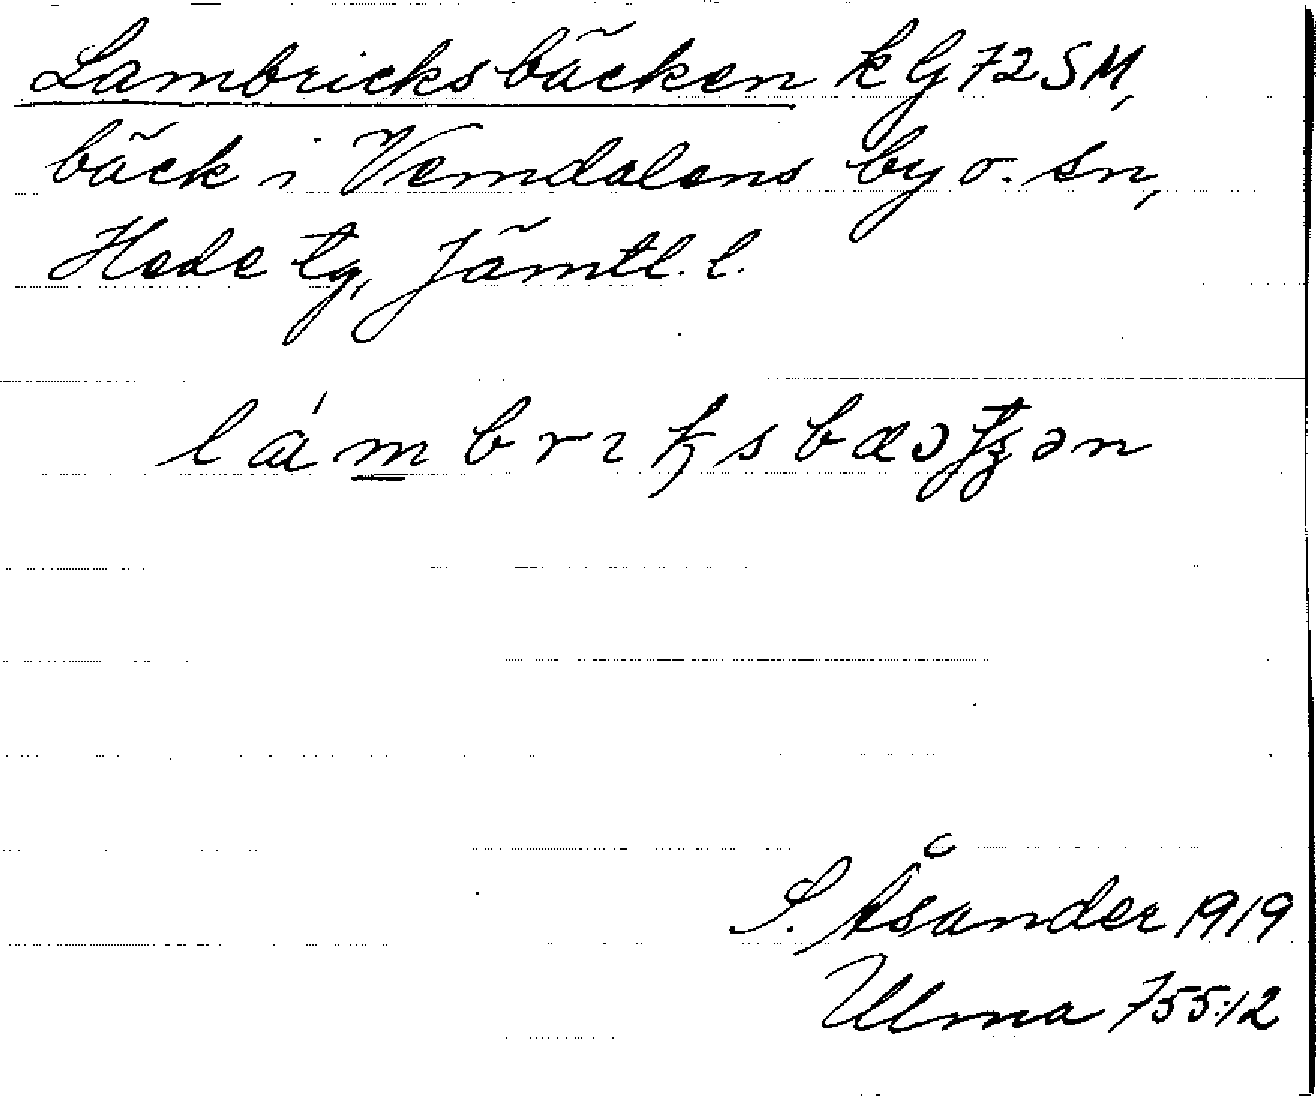 Lambricksbäcken kG72SM,
bäck i Vemdalens by o. sn,
Hede tg, Jämtl. l.
S. Åsander 1919
Ulma 755:12